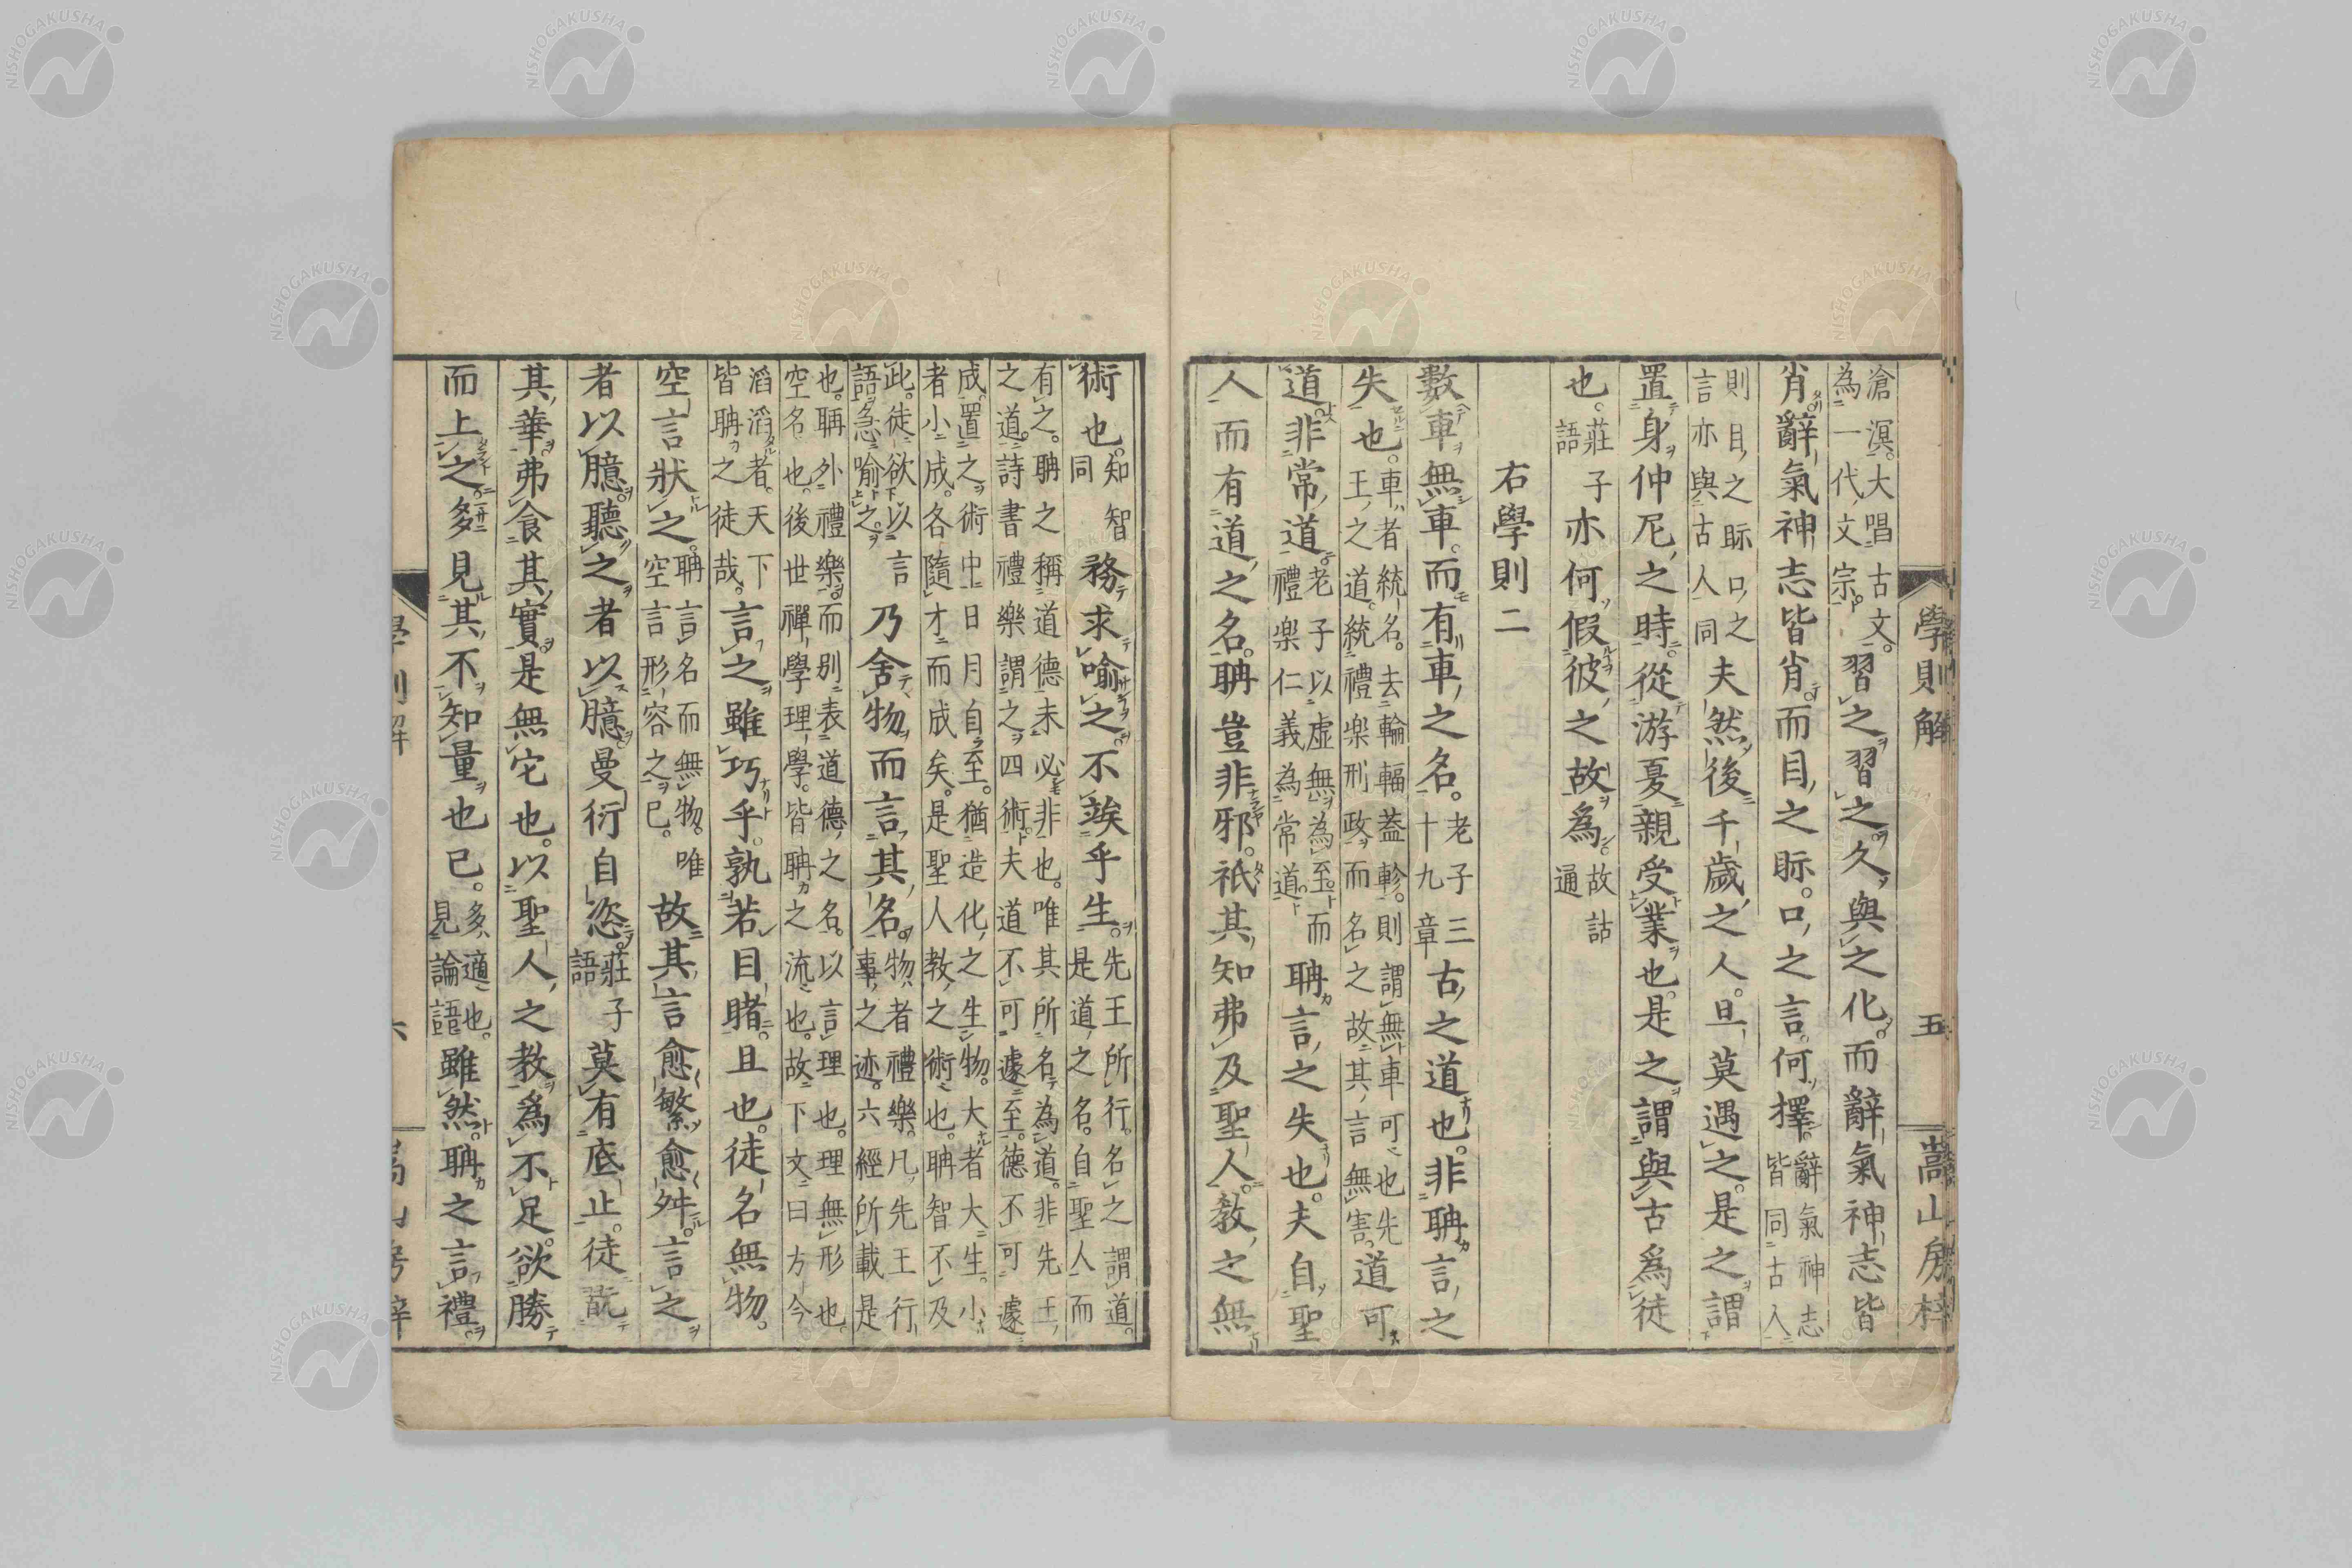 滄溟。大唱古文。
為一代文宗。
習之習之。久與之化。而辭氣神志皆
肖。辭氣神志皆肖。而目之眎。口之言。何擇。
辭氣神志
皆同古人
則目之眎口之
言亦與古人同
夫然後千歲之人。旦莫遇之。是之謂
置身仲尼之時。從游夏親受業也。是之謂與古為徒
也。
莊子
語
亦何假彼之故為。
故詁
通
右學則二
數車無車。而有車之名。
老子三
十九章
古之道也。非聃言之
失也。
車者統名。去輪輻蓋軫。則謂無車可也先
王之道。統禮楽刑政。而名之故其言無害。
道可
道非常道。
老子以虛無為至。而
禮楽仁義為常道
聃言之失也。夫自聖
人而有道之名。聃豈非邪。祇其知弗及聖人。教之無
術也。
知智
同
務求喻之不竢乎生。
先王所行。名之謂道。
是道之名。自聖人而
有之。聃之稱道德未必非也。唯其所名為道。非先王
之道。詩書禮樂謂之四術。夫道不可遽至。德不可遽
成。置之術中。日月自至。猶造化之生物。大者大生。小
者小成。各隨才而成矣。是聖人教之術也。聃智不及
此。徒欲以言
語急喻之。
乃舍物而言其名。
物者禮樂。凡先王行
事之迹。六經所載是
也。聃外禮樂。而別表道德之名。以言理也。理無形也。
空名也。後世禪學理學。皆聃之流也。故下文曰方今
滔滔者。天下
皆聃之徒哉。
言之雖巧乎。孰若目睹。且也。徒名無物。
空言狀之。
聃言名而無物。唯
空言形容之已。
故其言愈繁愈舛。言之
者以臆。聽之者以臆。曼衍自恣。
莊子
語
莫有底止。徒翫
其華。弗食其實。是無它也。以聖人之教為不足。欲勝
而上之。多見其不知量也已。
多適也。
見論語
雖然。聃之言禮。
學則解
五
嵩山房梓